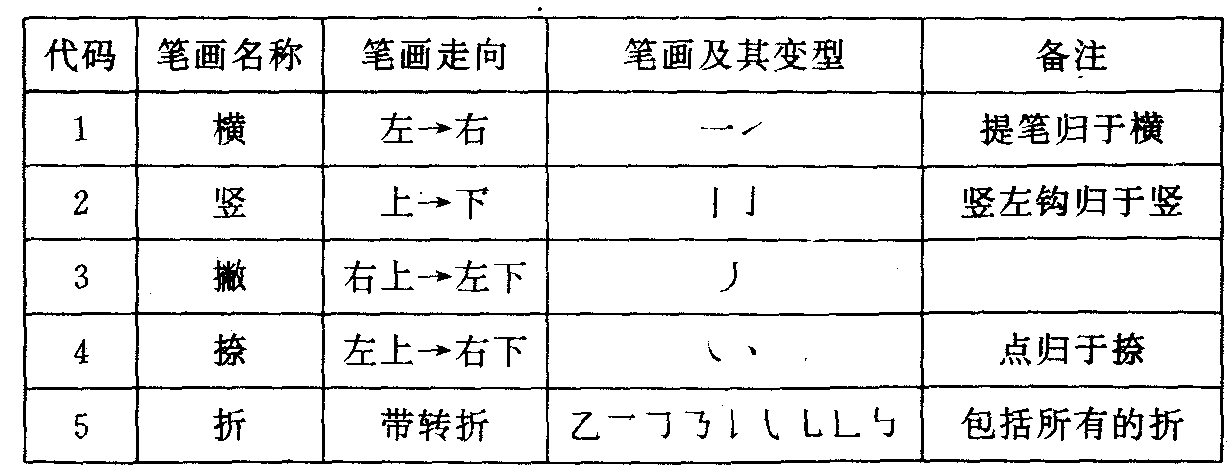 代码 笔画名称 笔画走向 笔画及其变型 备注
1 横 左→右 ㇐㇀ 提笔归于横
2 竖 上→下 丨亅 竖左钩归于竖
3 撇 右上→左下 丿 
4 捺 左上→右下 ㇏丶 点归于捺
5 折 带转折 乙乛𠃌㇋ 包括所有的折